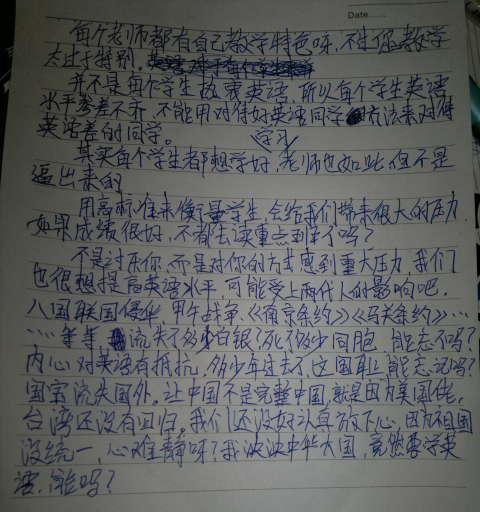 Date
每个老师都有自己教学特色呀,不过你教学
太过于特别,
并不是每个学生都爱英语,所以每个学生英语
水平参差不齐,不能用对待好英语同学方法来对待
英语差的同学。 学习
其实每个学生都想学好,老师也如此,但不是
逼出来的
用高标准来衡量学生,会给我们带来很大的压力,
如果成绩很好,不都去读重点班了吗?
不是讨厌你,而是对你的方式感到重大压力,我们
也很想提高英语水平,可能受上两代人的影响吧,
八国联国侵华,甲午战争,《南京条约》《马关条约》……
……等等 流失了多少白银?死了多少同胞,能忘不吗?
内心对英语有抵抗,多少年过去了,这国耻能忘记吗?
国宝流失国外,让中国不是完整中国,就是因为美国佬,
台湾还没有回归,我们还没好认真放下心,因为祖国
没统一,心难静呀?我泱泱中华大国,竟然要学英
语,能吗?